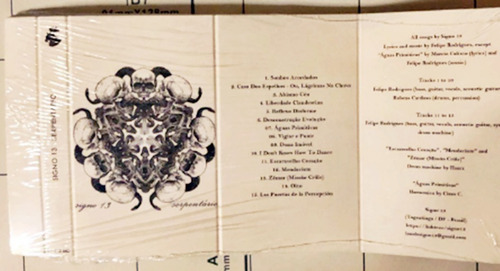 91mmX128mm
SIGNO 13
signo 13 serpentário
1. Sonhos Acordados
2. Casa Dos Espelhos - Ou, Lágrimas Na Chuva
3. Abismo Céu
4. Liberdade Clandestina
5. Reflexo Distinto
6. Desconstrução Evolução
07. Águas Primitivas
08. Vigiar e Punir
09. Duna Imóvel
10. I Don't Know How To Dance
11. Escaravelho Coração
12. Mendacium
13. Zênite
14. Olho
15. Las Puertas de la Percepción
All songs by Signo 13
Lyrics and music by Felipe Rodrigues, except
"Águas Primitivas" by Marcio Calixto (lyrics) and
Felipe Rodrigues (music)
Tracks 1 to 10
Felipe Rodrigues (bass, guitar, vocals, acoustic guitar)
Roberto Cardoso (drums, percussion)
Tracks 11 to 15
Felipe Rodrigues (bass, guitar, vocals, acoustic guitar,
drum machine)
"Escaravelho Coração", "Mendacium" and
"Zênite
Drum machine by
"Águas Primitivas"
Harmonica by
Signo 13
(Taguatinga / DF - Brasil)